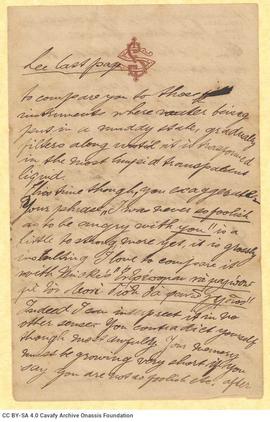 See last page
to compare you to those
instruments where water being
put in a muddy state, gradually
filters along until it is transformed
in the most limpid transparent
liquid.
This time though, you exaggerate
Your phrase "I was never so foolish
as to be angry with you" is a
little to strong more yet, it is grossly
insulting. I love to compare it
with
Indeed I can interpret it in no
other sense. You contradict yourself
though most awfully. Your memory
must be growing very short, if you
say you are not so foolish etc. after
CC BY-SA 4.0 Cavafy Archive Onassis Foundation